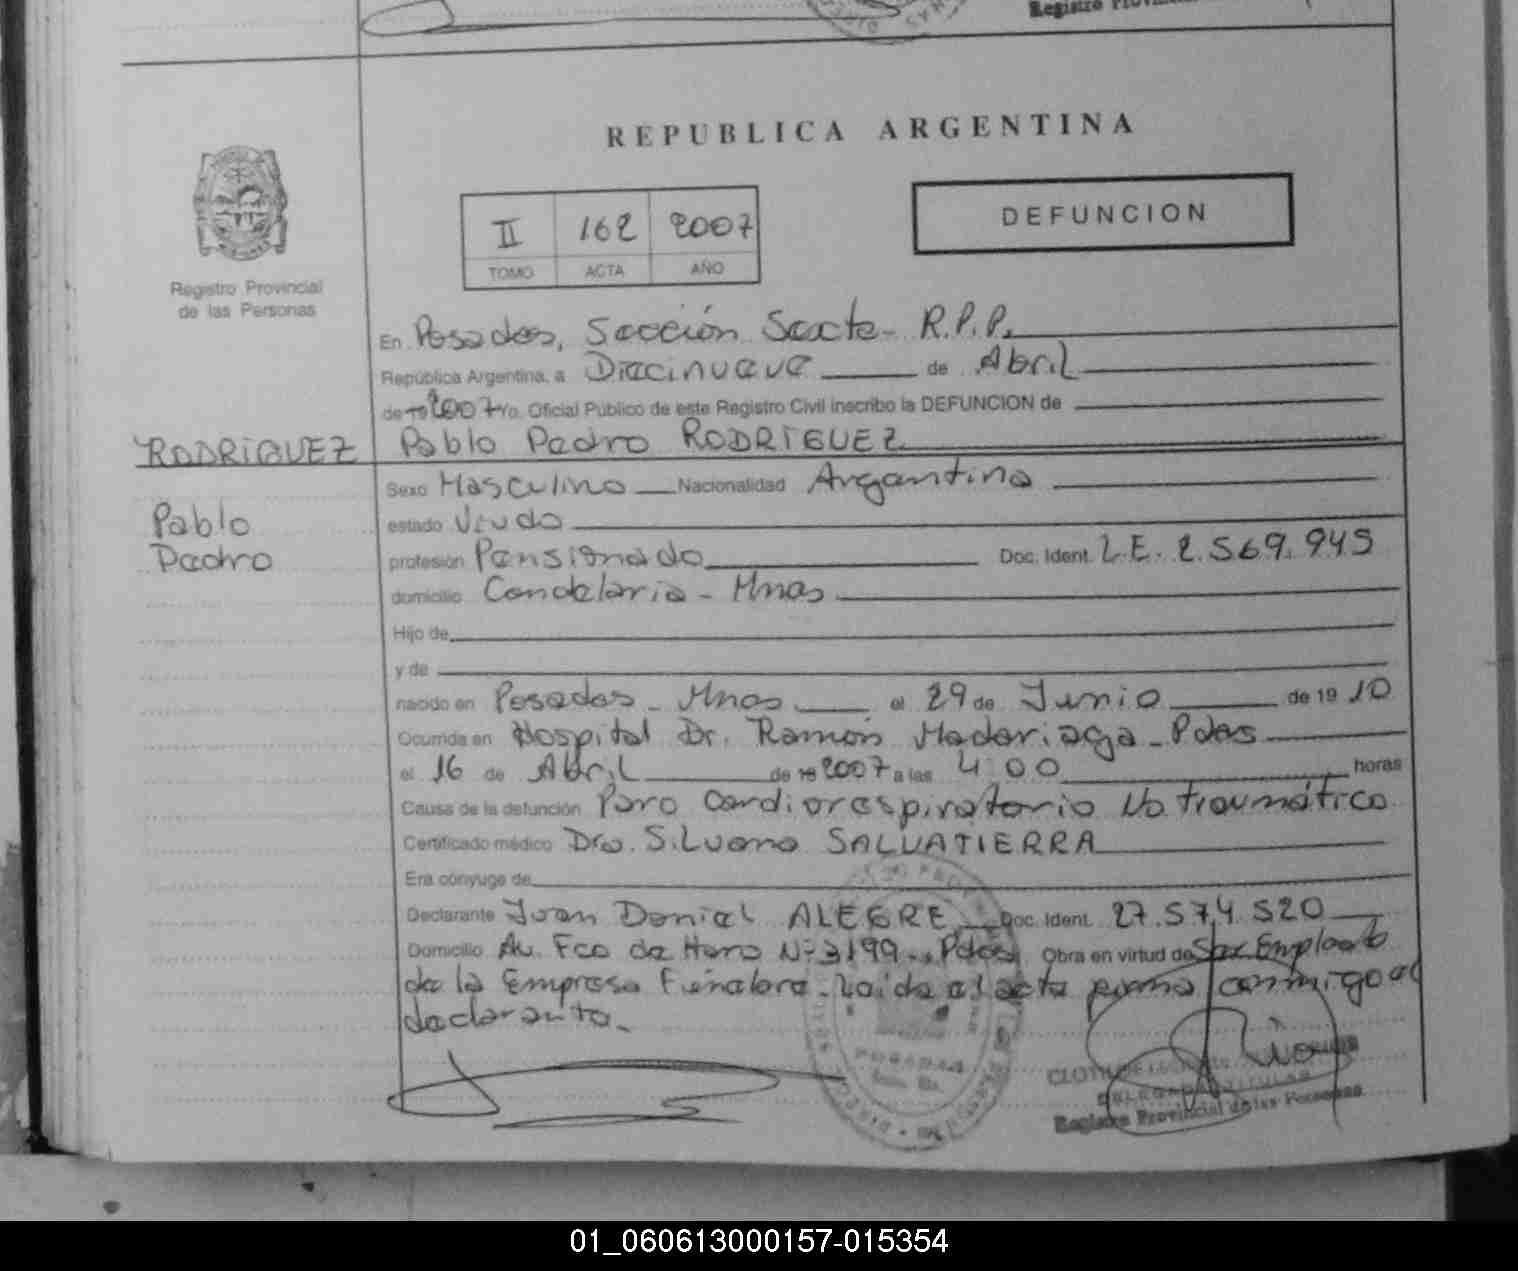 Registro Provincial
REPUBLICA ARGENTINA
II 162 2007
TOMO ACTA AÑO
DEFUNCION
Registro Provincial
de las Personas
En Posadas, Sección Sexta- R.P.P.
República Argentina, a Diecinueve de Abril
de 19 2007 Yo. Oficial Público de este Registro Civil inscribo la DEFUNCION de
RODRIGUEZ Pablo Pedro RODRIGUEZ
Pablo
Pedro
Sexo Masculino Nacionalidad Argentina
estado Viudo
profesión Pensionado Doc. Ident. L.E. 2.569.945
domicilio Candelaria - Mnes
Hijo de
y de
nacido en Posadas - Mnes el 29 de Junio de 19 10
Ocurrida en Hospital Dr. Ramón Madariaga - Pdas
el 16 de Abril de 19 2007 a las 4:00 horas
Causa de la defunción Paro Cardiorespiratorio No traumático
Certificado médico Dra. Silvana SALVATIERRA
Era cónyuge de
Declarante Juan Daniel ALEGRE Doc. Ident. 27.574.520
Domicilio Av. Fco de Haro Nº 3199 - Pdas Obra en virtud de Ser Empleado
de la Empresa Fúnebre. Leída el acta firma conmigo el
declarante.
POSADAS
DELEGADA TITULAR
Registro Provincial de las Personas
01_060613000157-015354